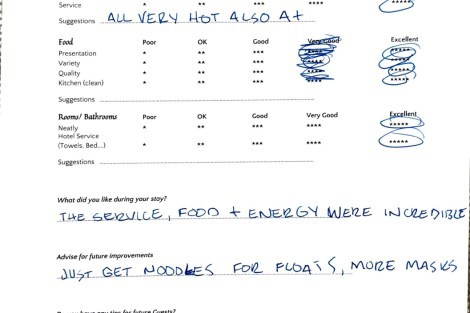 Service * ** *** **** *****
Suggestions ALL VERY HOT ALSO A+
Food Poor OK Good Very Good Excellent
Presentation * ** *** *****
Variety * ** *** *****
Quality * ** *** *****
Kitchen (clean) * ** *** *****
Suggestions
Rooms/ Bathrooms Poor OK Good Very Good Excellent
Neatly * ** *** **** *****
Hotel Service
(Towels, Bed...) * ** *** **** *****
Suggestions
What did you like during your stay?
THE SERVICE, FOOD + ENERGY WERE INCREDIBLE
Advise for future improvements
JUST GET NOODLES FOR FLOATS, MORE MASKS